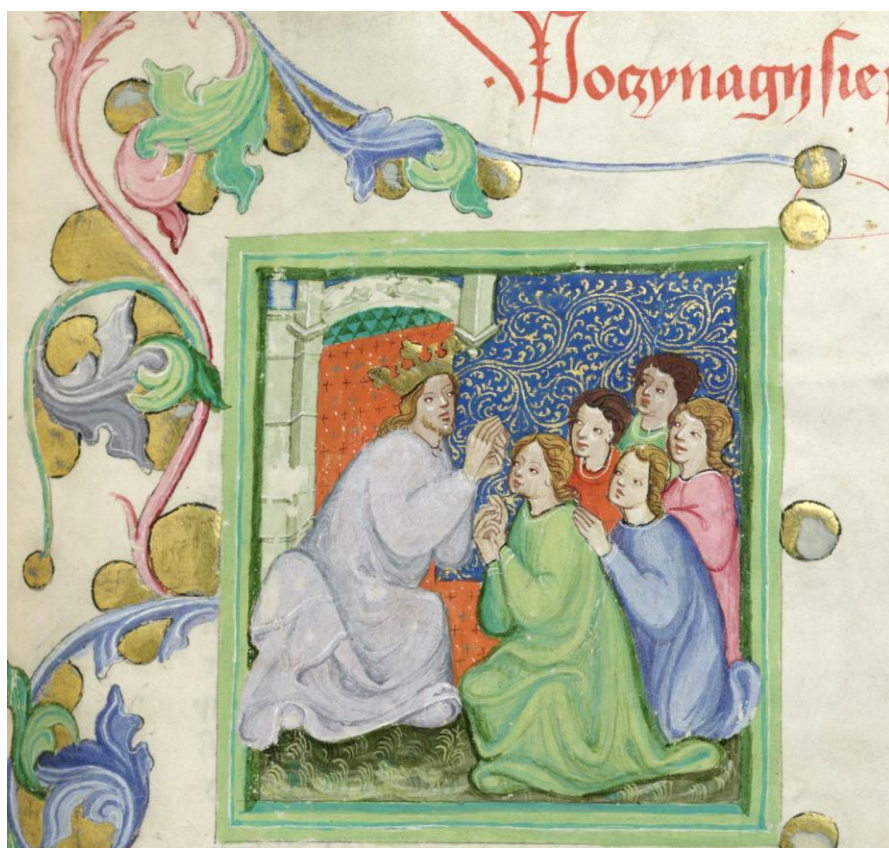 Poczynagÿ sie